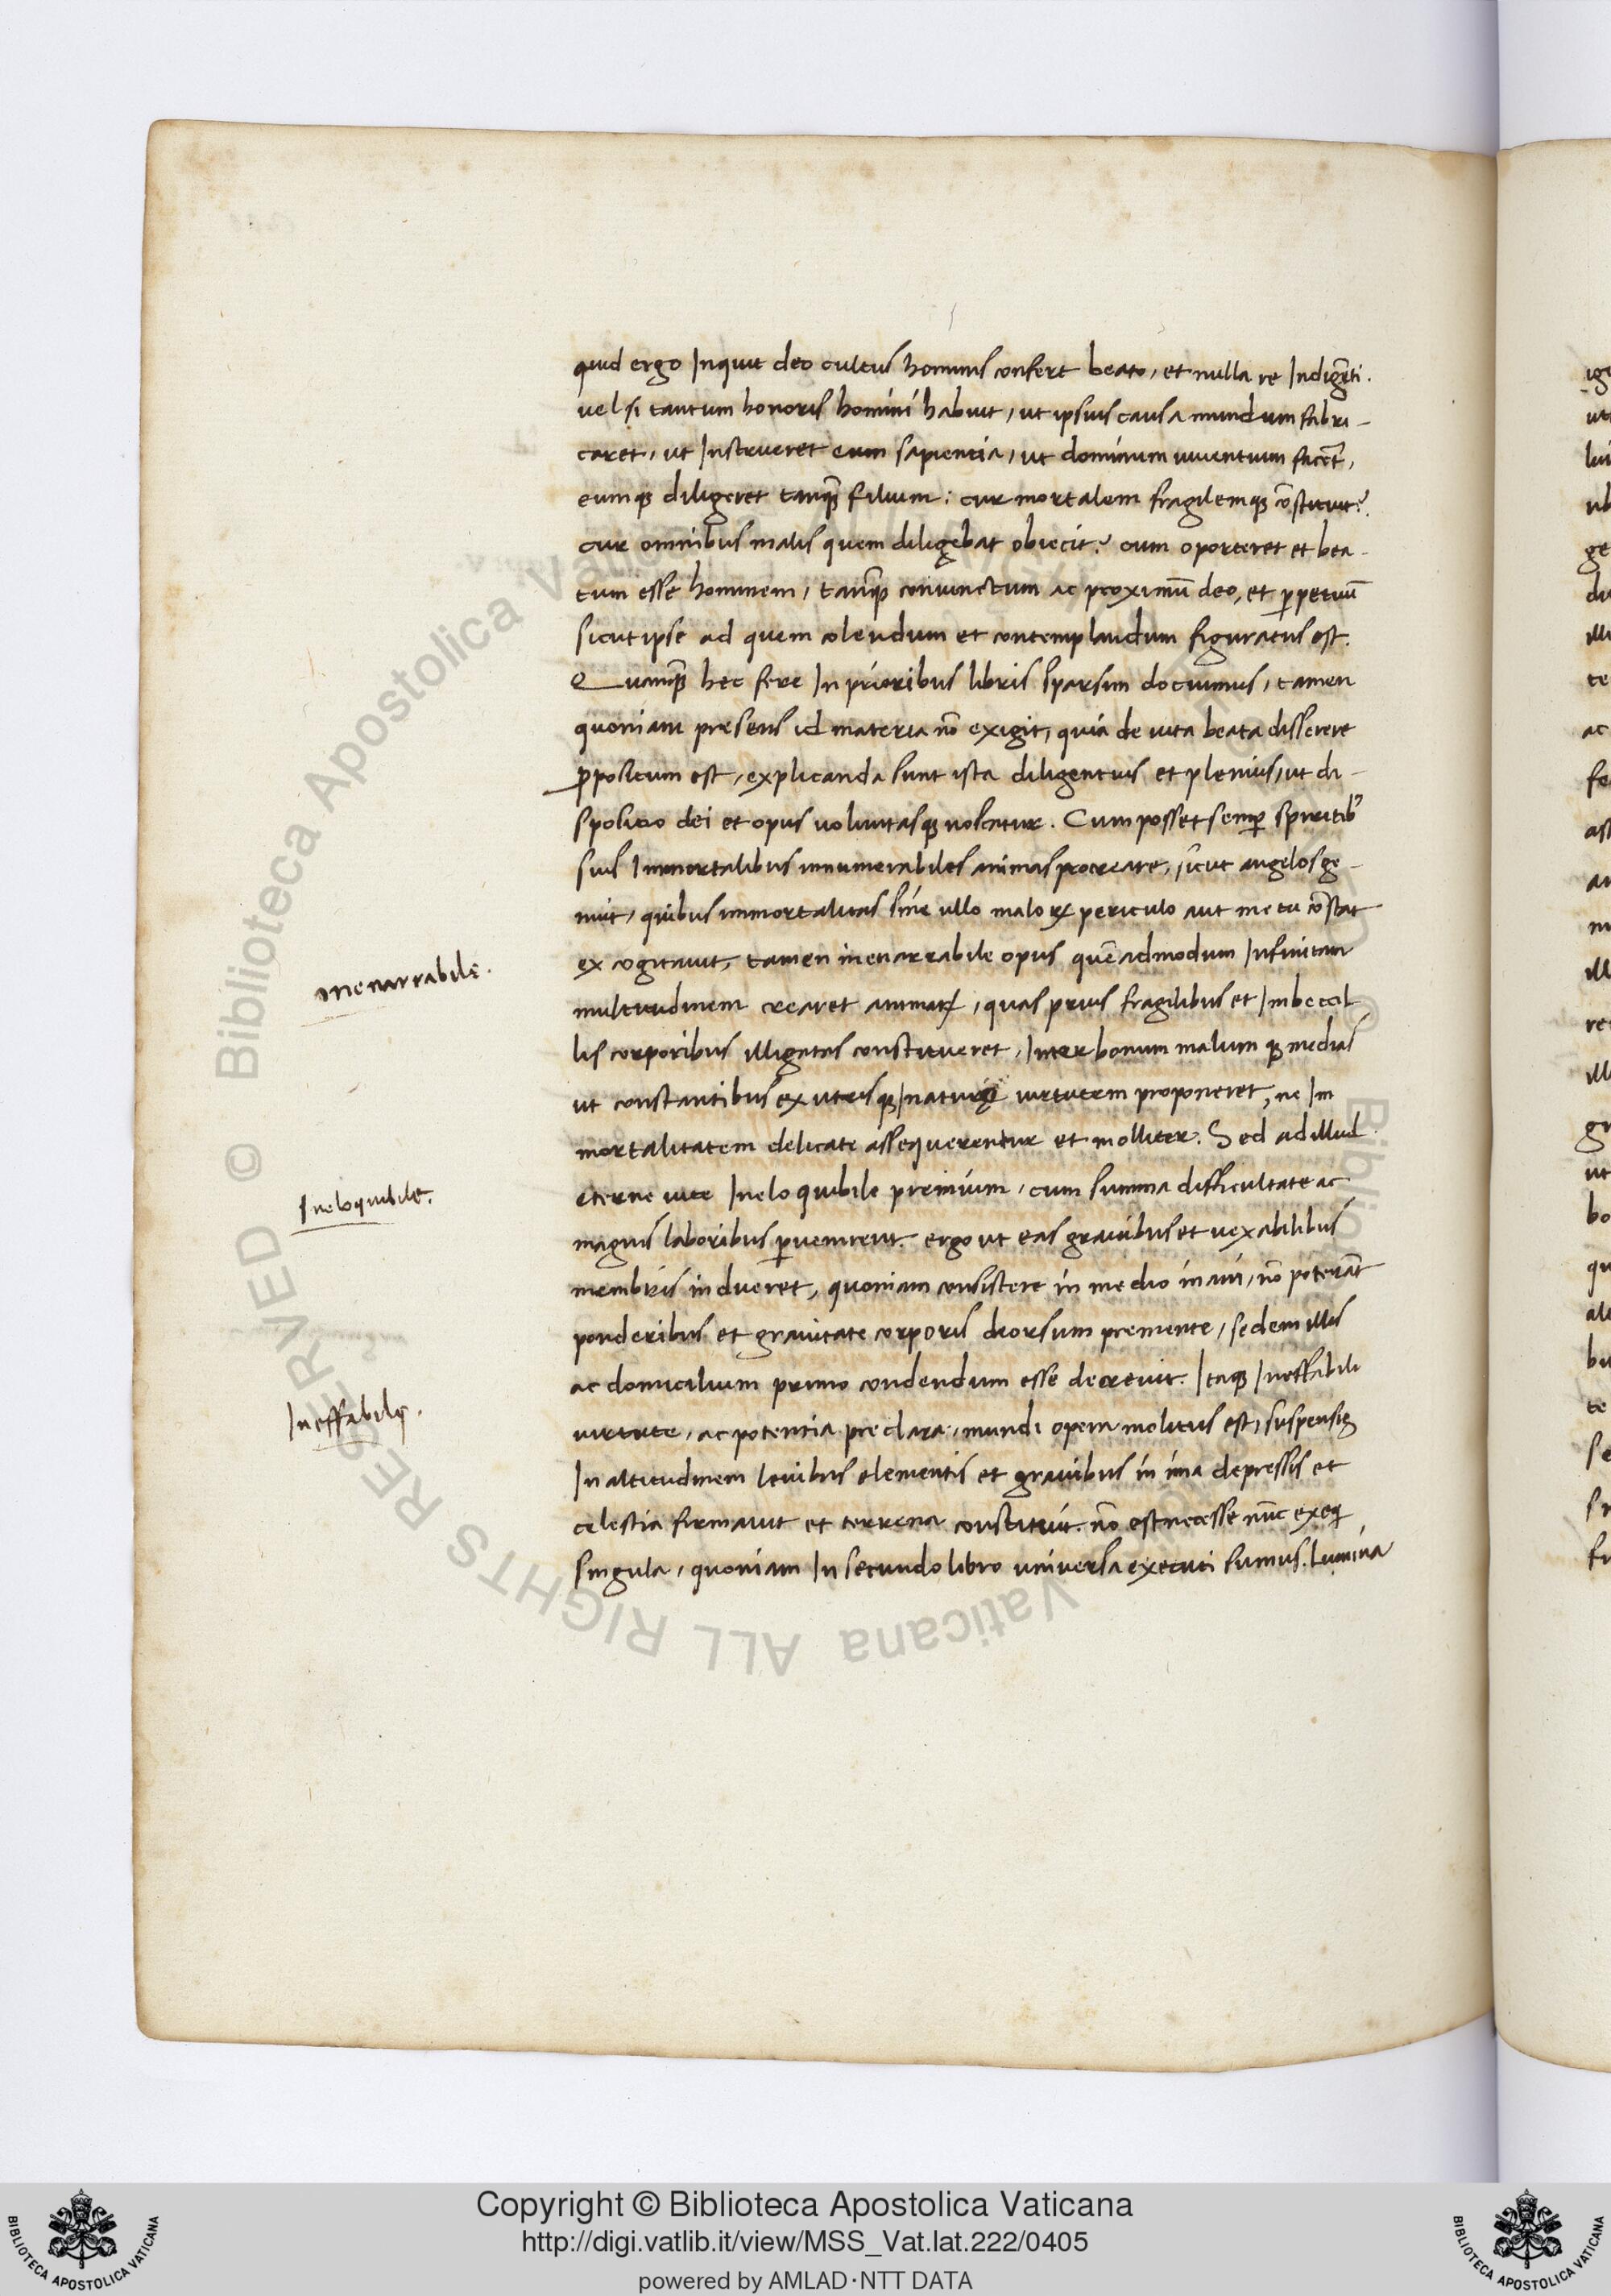 quid ergo Inquit deo cultus hominis confert beato, et nulla re Indigẽti.
uel si tantum honoris homini habuit, ut ipsius causa mundum fabri-
caret, ut Instrueret eum sapientia, ut dominum uiuentium facẽt,
eumqꝫ diligeret tanqꝫ̃ filium: cur mortalem fragilemqꝫ cõstituit?
cur omnibus malis quem diligebat obiecit? cum oporteret et bea-
tum esse hominem, tanqꝫ̃ coniunctum ac proximũ deo, et ꝑpetuũ
sicut ipse ad quem colendum et contemplandum figuratus est.
Quamqꝫ̃ hec fere In prioribus libris sparsim docuimus, tamen
quoniam presens id materia nõ exigit, quia de uita beata disserere
ꝓpositum est, explicanda sunt ista diligentius et plenius, ut di-
spositio dei et opus uoluntasqꝫ noscatur. Cum posset semꝑ spiritib᾽
suis Immortalibus innumerabiles animas procreare, sicut angelos ge-
nuit, quibus immortalitas sine ullo maloꝝ periculo aut metu cõstat
ex cogitauit, tamen inenarrabile opus quẽadmodum Infinitam
multitudinem crearet animaꝝ, quas prius fragilibus et Imbecil
lis corporibus illigatas constitueret, Inter bonum malumqꝫ medias
ut constantibus ex utrisqꝫ naturis uirtutem proponeret, ne Im
mortalitatem delicate assequerentur et molliter. Sed ad illud
eterne uite Ineloquibile premium, cum summa difficultate ac
magnis laboribus ꝑuenirent. ergo ut eas grauibus et uexabilibus
membris indueret, quoniam consistere in medio inani, nõ poterãt
ponderibus et grauitate corporis deorsum premente, sedem illis
ac domicilium primo condendum esse decreuit. Itaqꝫ Ineffabili
uirtute, ac potentia preclara, mundi opera molitus est, suspensis
In altitudinem leuibus elementis et grauibus in ima depressis et
celestia firmauit et terrena constituit. nõ est necesse nũc exeq̃
singula, quoniam In secundo libro uniuersa executi sumus. Lumina
Inenarrabile.
Ineloquibile.
Ineffabilis.
© Biblioteca Apostolica Vaticana ALL RIGHTS RESERVED
Copyright © Biblioteca Apostolica Vaticana
http://digi.vatlib.it/view/MSS_Vat.lat.222/0405
powered by AMLAD·NTT DATA
BIBLIOTECA APOSTOLICA VATICANA
BIBLIOTECA APOSTOLICA VATICANA